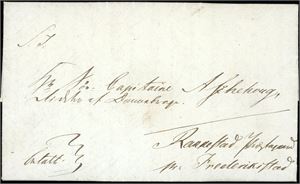 S. T.
Hr. Capitaine Aschehoug,
Ridder af Dannebroge.
Raakestad Præstegaard
pr. Frederikstad
betalt.